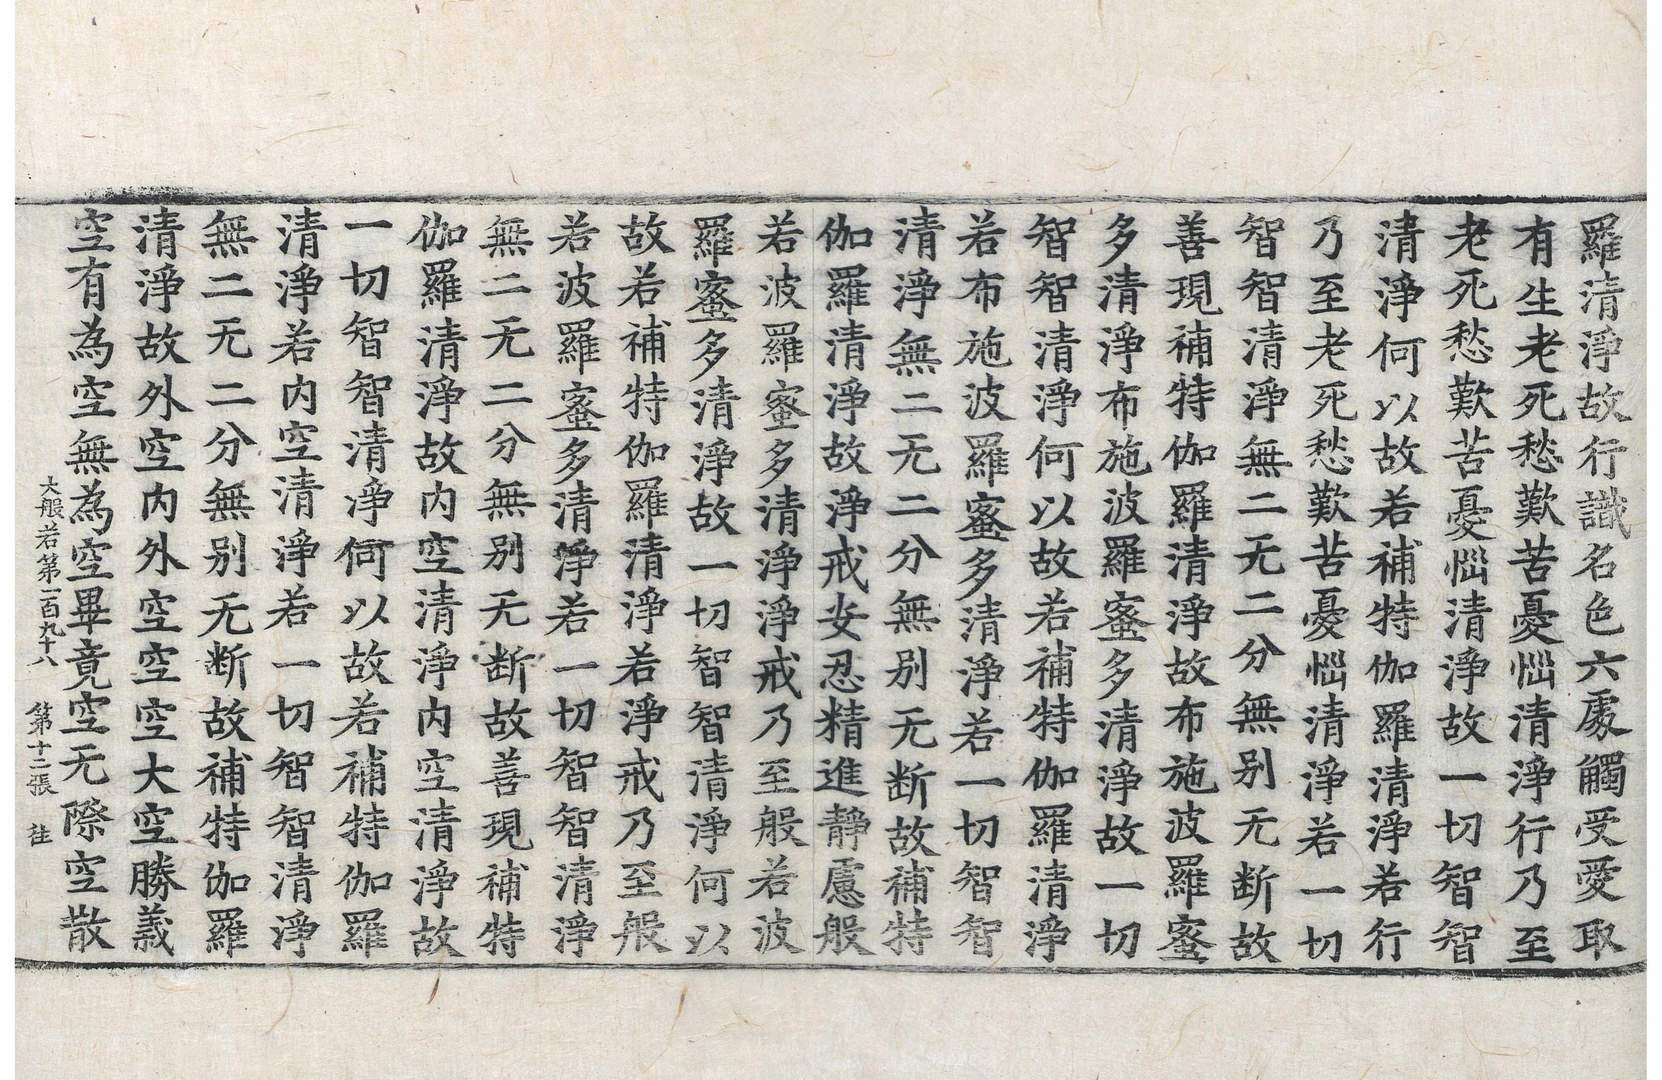 羅清淨故行識名色六處觸受愛取
有生老死愁歎苦憂惱清淨行乃至
老死愁歎苦憂惱清淨故一切智智
清淨何以故若補特伽羅清淨若行
乃至老死愁歎苦憂惱清淨若一切
智智清淨無二无二分無别无断故
善現補特伽羅清淨故布施波羅蜜
多清淨布施波羅蜜多清淨故一切
智智清淨何以故若補特伽羅清淨
若布施波羅蜜多清淨若一切智智
清淨無二无二分無别无断故補特
伽羅清淨故淨戒安忍精進靜慮般
若波羅蜜多清淨淨戒乃至般若波
羅蜜多清淨故一切智智清淨何以
故若補特伽羅清淨若淨戒乃至般
若波羅蜜多清淨若一切智智清淨
無二无二分無别无断故善現補特
伽羅清淨故内空清淨内空清淨故
一切智智清淨何以故若補特伽羅
清淨若内空清淨若一切智智清淨
無二无二分無别无断故補特伽羅
清淨故外空内外空空空大空勝義
空有為空無為空畢竟空无際空散
大般若第一百九十八 第十二張